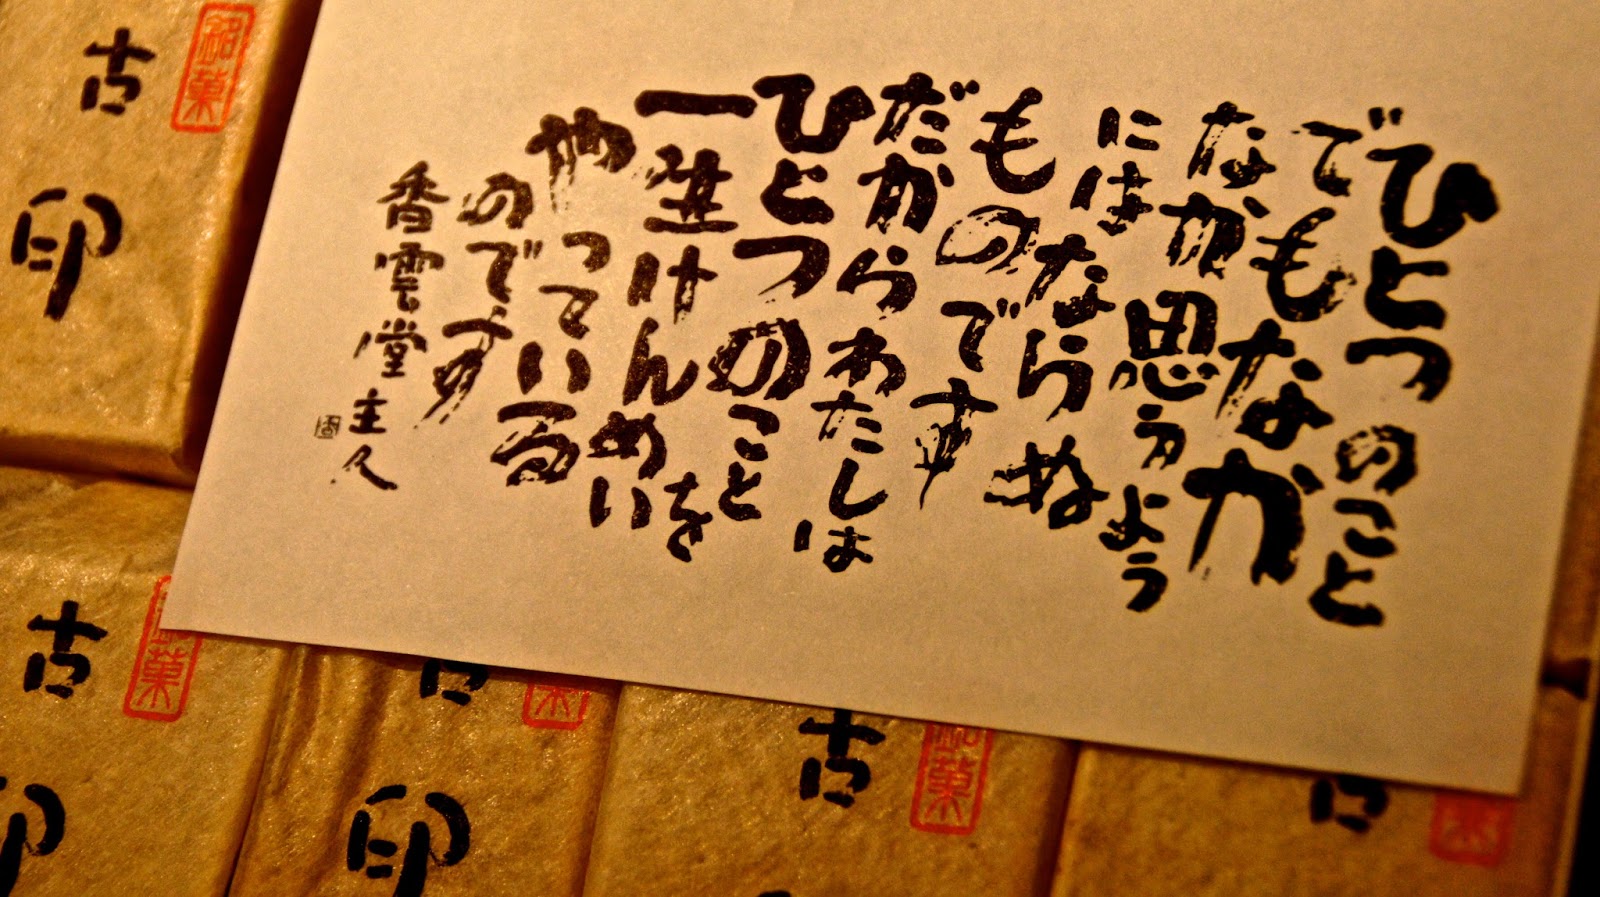 ひとつのこと
でもなかなか
なか思うよう
にはならぬ
ものです
だからわたしは
ひとつのことを
一生けんめい
やっている
のです
香雲堂主人
銘菓
古印
菓
古印
古印
銘菓
古
古